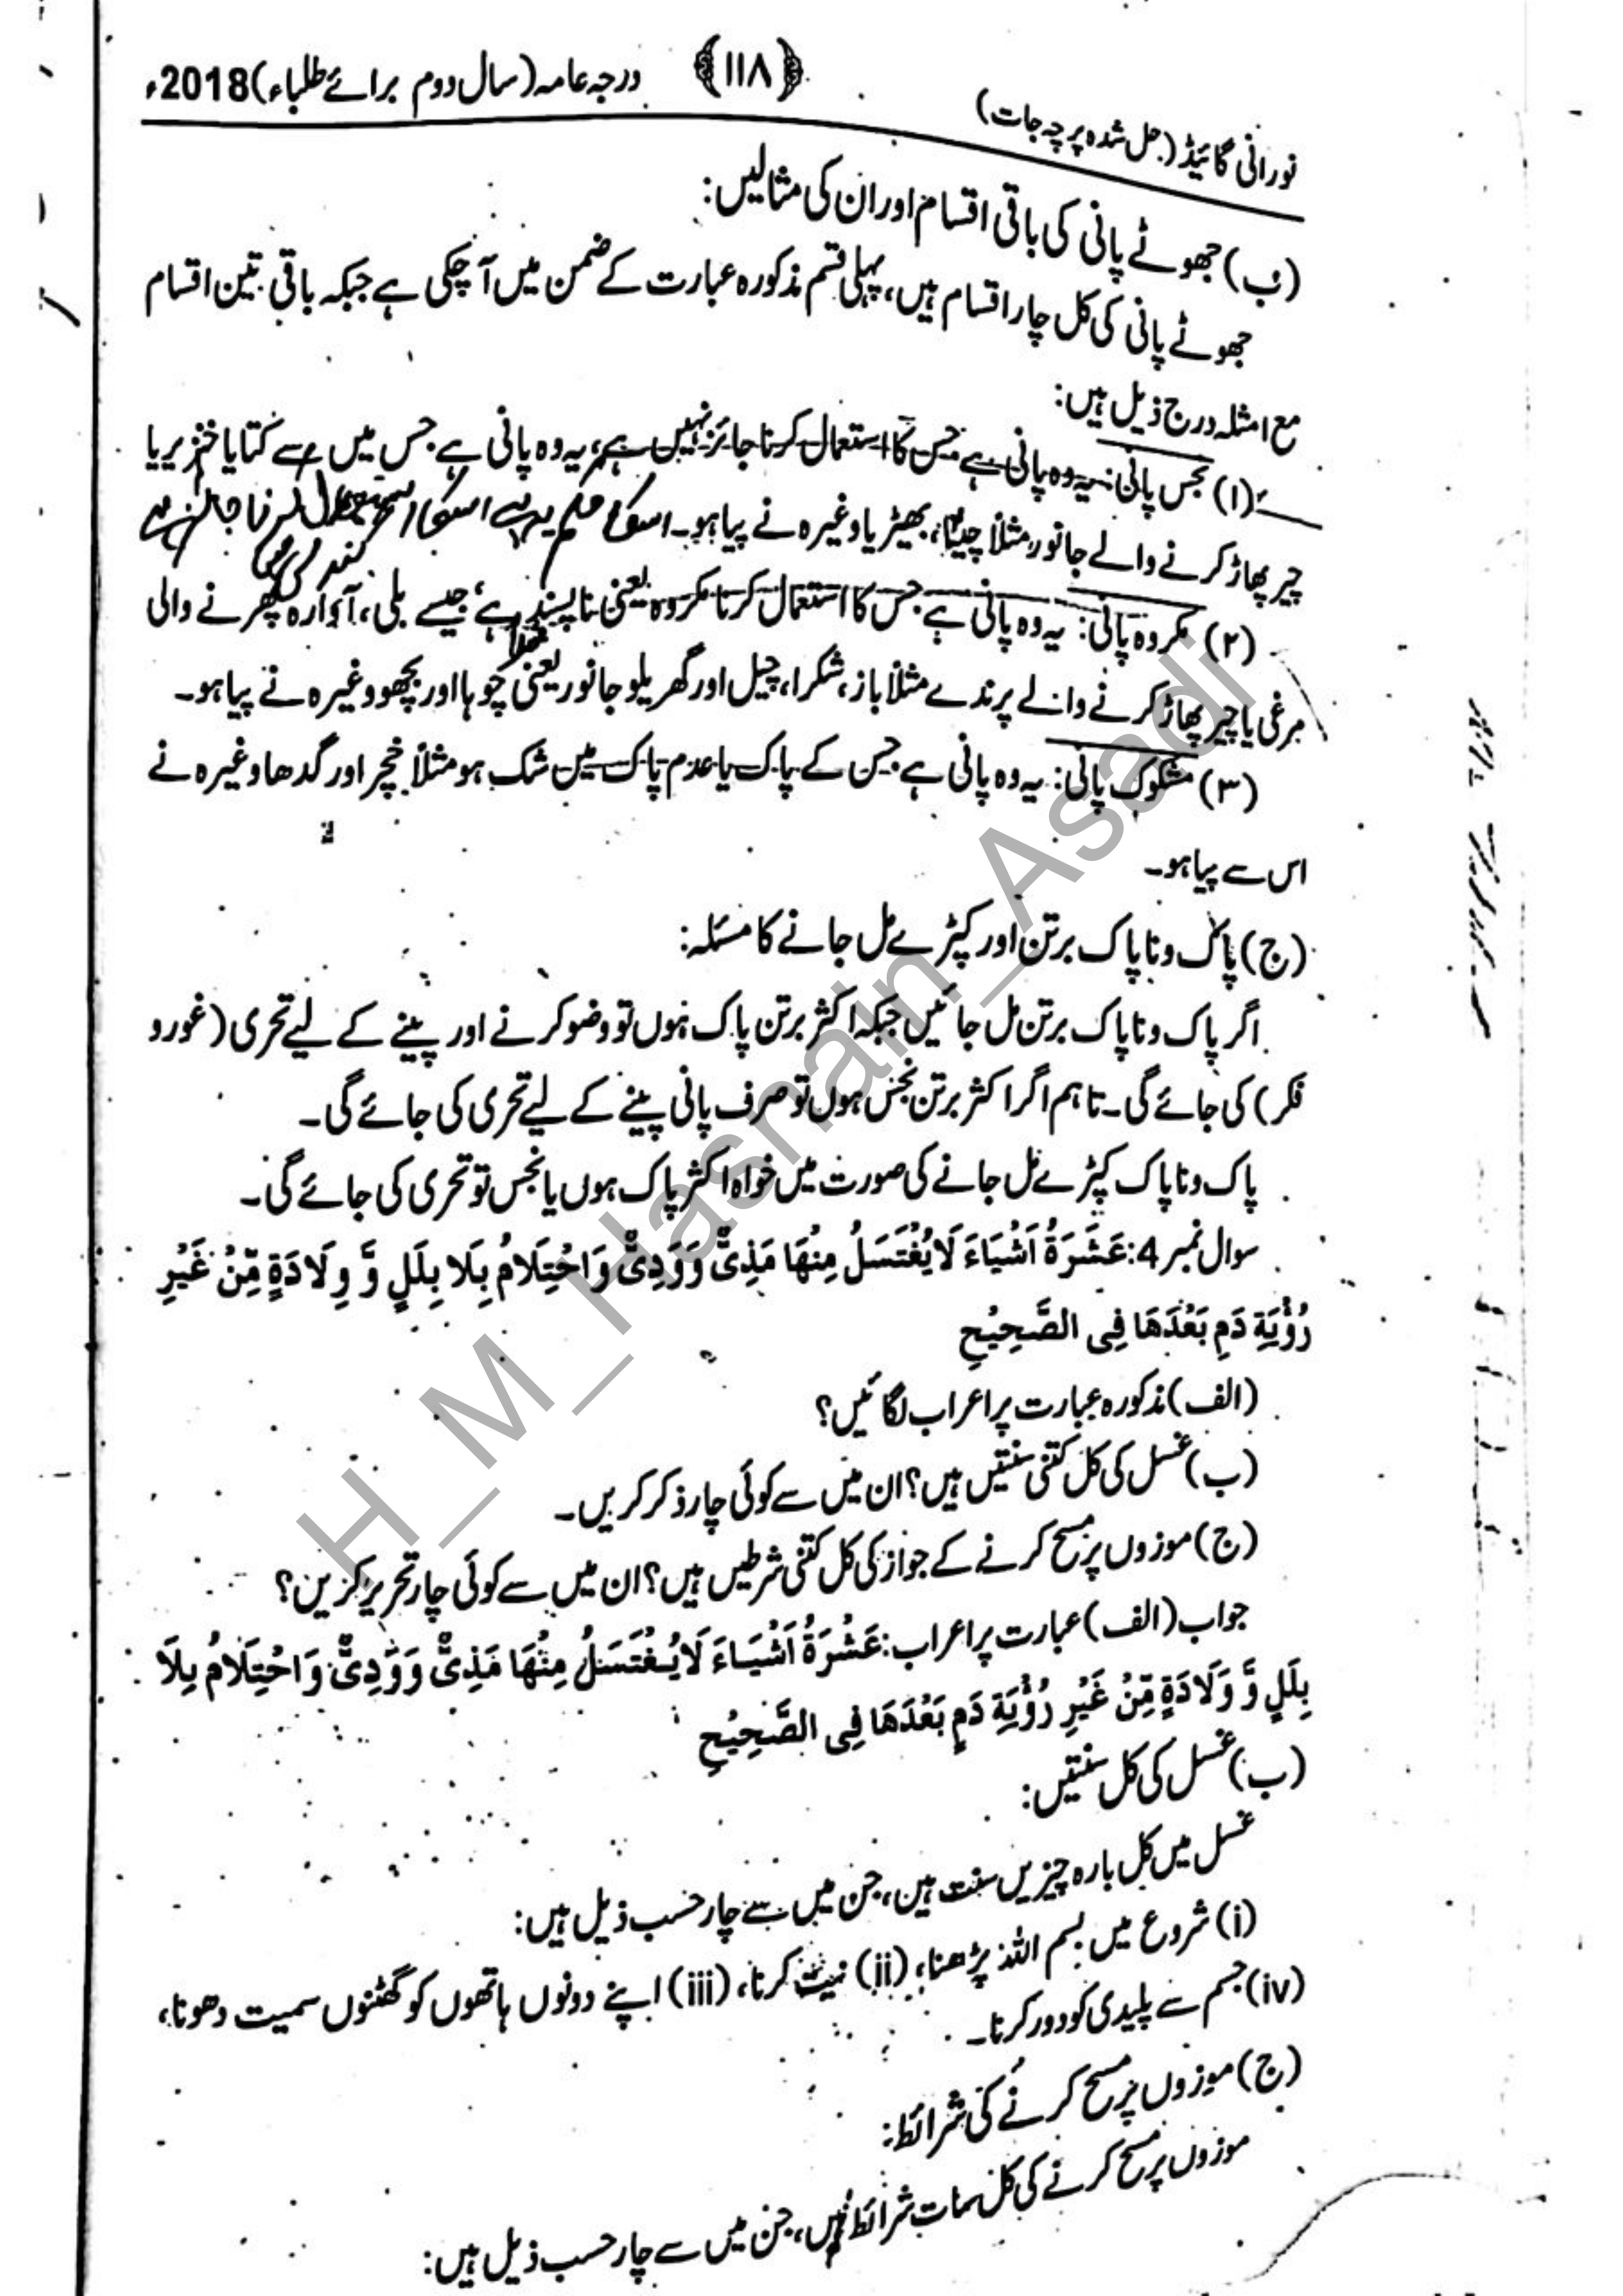 نورانی گائیڈ (حل شدہ پرچہ جات) ﴿۱۱۸﴾ درجہ عامہ (سال دوم برائے طلباء) 2018ء
(ب) جھوٹے پانی کی باقی اقسام اور ان کی مثالیں:
جھوٹے پانی کی کل چار اقسام ہیں، پہلی قسم مذکورہ عبارت کے ضمن میں آ چکی ہے جبکہ باقی تین اقسام
مع امثلہ درج ذیل ہیں:
(۱) نجس پانی: یہ وہ پانی ہے جس کا استعمال کرنا جائز نہیں ہے، یہ وہ پانی ہے جس میں سے کتا یا خنزیر یا
چیر پھاڑ کرنے والے جانور مثلاً چیتا، بھیڑیا وغیرہ نے پیا ہو۔ اسکا حکم یہ ہے اسکا استعمال کرنا جائز ہے
(۲) مکروہ پانی: یہ وہ پانی ہے جس کا استعمال کرنا مکروہ یعنی ناپسند ہے، جیسے بلی، آوارہ پھرنے والی
مرغی یا چیر پھاڑ کرنے والے پرندے مثلاً باز، شکرا، چیل اور گھریلو جانور یعنی چوہا اور بچھو وغیرہ نے پیا ہو۔
(۳) مشکوک پانی: یہ وہ پانی ہے جس کے پاک یا عدم پاک میں شک ہو مثلاً خچر اور گدھا وغیرہ نے
اس سے پیا ہو۔
(ج) پاک و ناپاک برتن اور کپڑے مل جانے کا مسئلہ:
اگر پاک و ناپاک برتن مل جائیں جبکہ اکثر برتن پاک ہوں تو وضو کرنے اور پینے کے لیے تحری (غور و
فکر) کی جائے گی۔ تاہم اگر اکثر برتن نجس ہوں تو صرف پانی پینے کے لیے تحری کی جائے گی۔
پاک و ناپاک کپڑے مل جانے کی صورت میں خواہ اکثر پاک ہوں یا نجس تو تحری کی جائے گی۔
سوال نمبر 4: عَشَرَةُ اَشْيَاءَ لَا يُغْتَسَلُ مِنْهَا مَذِيٌّ وَوَدِيٌّ وَاحْتِلَامٌ بِلَا بِلَلٍ وَّ وِلَادَةٍ مِّنْ غَيْرِ
رُؤْيَةِ دَمٍ بَعْدَهَا فِى الصَّحِيْحِ
(الف) مذکورہ عبارت پر اعراب لگائیں؟
(ب) غسل کی کل کتنی سنتیں ہیں؟ ان میں سے کوئی چار ذکر کریں۔
(ج) موزوں پر مسح کرنے کے جواز کی کل کتنی شرطیں ہیں؟ ان میں سے کوئی چار تحریر کریں؟
جواب (الف) عبارت پر اعراب: عَشْرَةُ اَشْيَاءَ لَا يُغْتَسَلُ مِنْهَا مَذِيٌّ وَوَدِيٌّ وَاحْتِلَامُ بِلَا
بِلَلٍ وَّ وَلَادَةٍ مِّنْ غَيْرِ رُؤْيَةِ دَمٍ بَعْدَهَا فِى الصَّحِيْحِ
(ب) غسل کی کل سنتیں:
غسل میں کل بارہ چیزیں سنت ہیں، جن میں سے چار حسب ذیل ہیں:
(i) شروع میں بسم اللہ پڑھنا، (ii) نیت کرنا، (iii) اپنے دونوں ہاتھوں کو گھٹنوں سمیت دھونا،
(iv) جسم سے پلیدی کو دور کرنا۔
(ج) موزوں پر مسح کرنے کی شرائط:
موزوں پر مسح کرنے کی کل سات شرائط ہیں، جن میں سے چار حسب ذیل ہیں:
H_M_Hasnain_Asadi